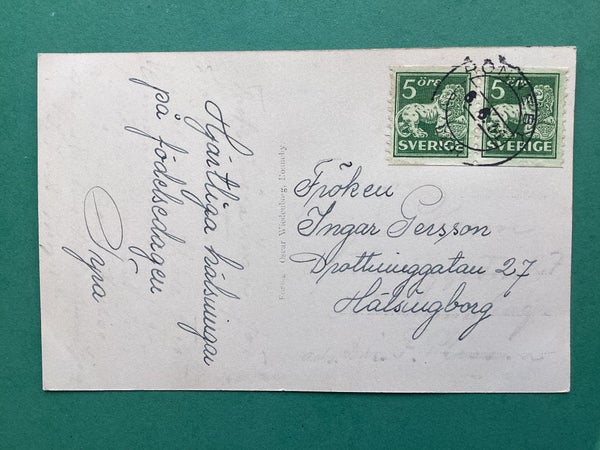 Hjärtliga hälsningar
på födelsedagen
Tyra
Förlag: Oscar Windenborg, Ronneby
5 ÖRE
SVERIGE
5 ÖRE
SVERIGE
RONNEBY
Fröken
Ingar Persson
Drottninggatan 27
Hälsingborg